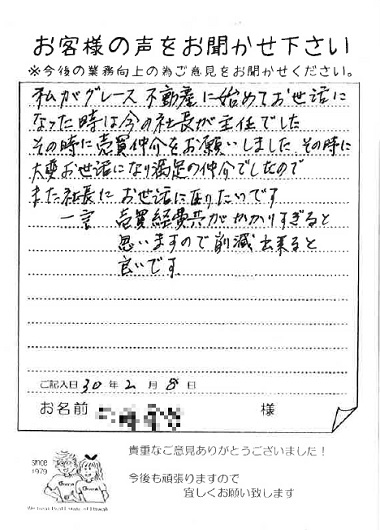 お客様の声をお聞かせ下さい
※今後の業務向上の為ご意見をお聞かせください。
私がグレース不動産に始めてお世話に
なった時は今の社長が主任でした
その時に売買仲介をお願いしました その時に
大変お世話になり満足の仲介でしたので
また社長にお世話に成りたいです
一言 売買経費共がかかりすぎると
思いますので削減出来ると
良いです
ご記入日 30年2月8日
お名前 様
貴重なご意見ありがとうございました！
since
1979
今後も頑張りますので
宜しくお願い致します